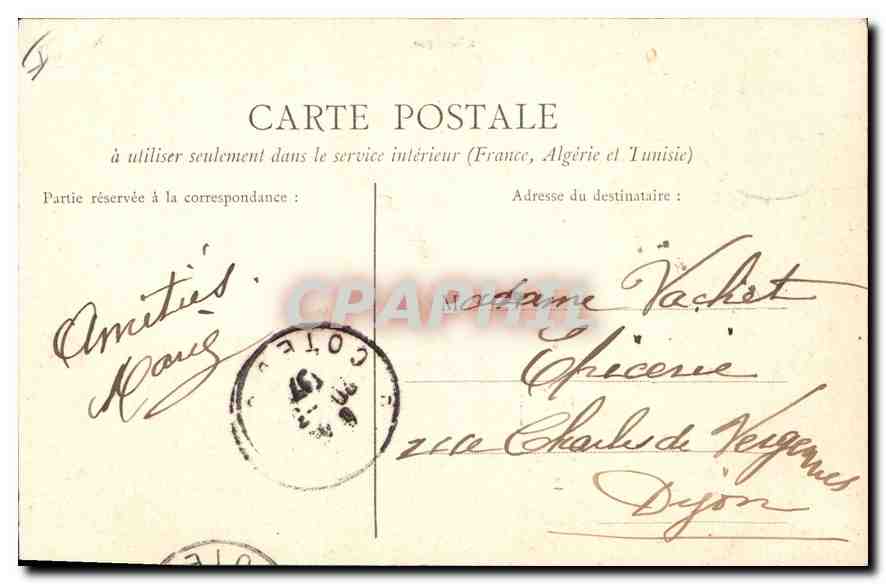 CARTE POSTALE
à utiliser seulement dans le service intérieur (France, Algérie et Tunisie)
Partie réservée à la correspondance :
Adresse du destinataire :
Amitiés.
CPAPHIL
COTE
Madame Vachet
Epicerie
rue Charles de Vergennes
Dijon